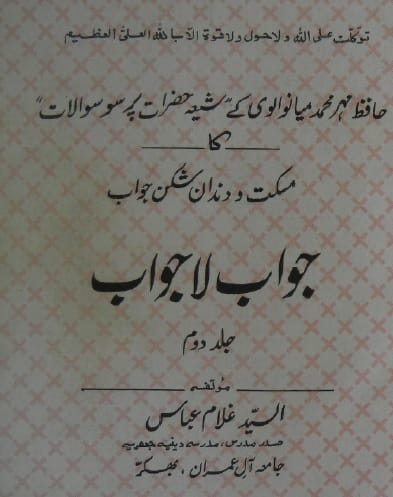 توکلت علی اللہ ولا حول ولا قوۃ الا باللہ العلی العظیم
حافظ مہر محمد میانوالوی کے "شیعہ حضرات پر سو سوالات"
کا
مسکت و دندان شکن جواب
جواب لا جواب
جلد دوم
مؤلفہ
السیّد غلام عباس
صدر مدرس، مدرسہ دینیہ جعفریہ
جامعہ آل عمران، بھکر